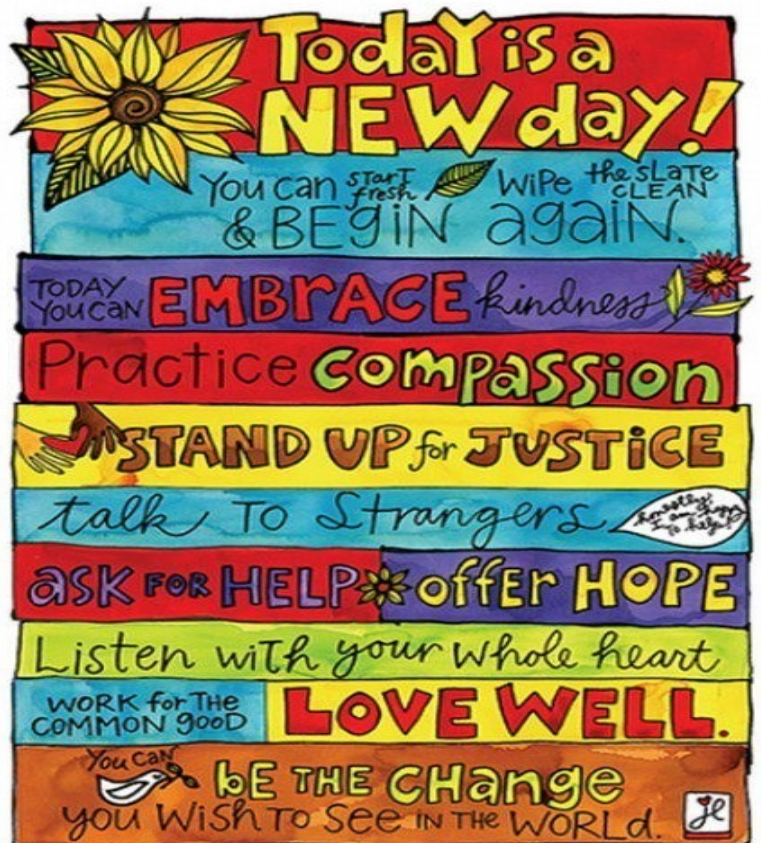 Today is a
NEW day!
You can start fresh wipe the slate CLEAN
& BEgiN agaiN.
TODAY YOU CAN EMBrACE kindness
Practice compassion
STAND UP for JUSTiCE
talk To Strangers
honestly! I am happy to help!
ask FOR HELP offer HOPE
Listen wiTh your whole heart
WORK for THe COMMON gOOD LOVE WELL.
You CAN
bE THE CHange
you WisH To See IN THE WORLd.
je